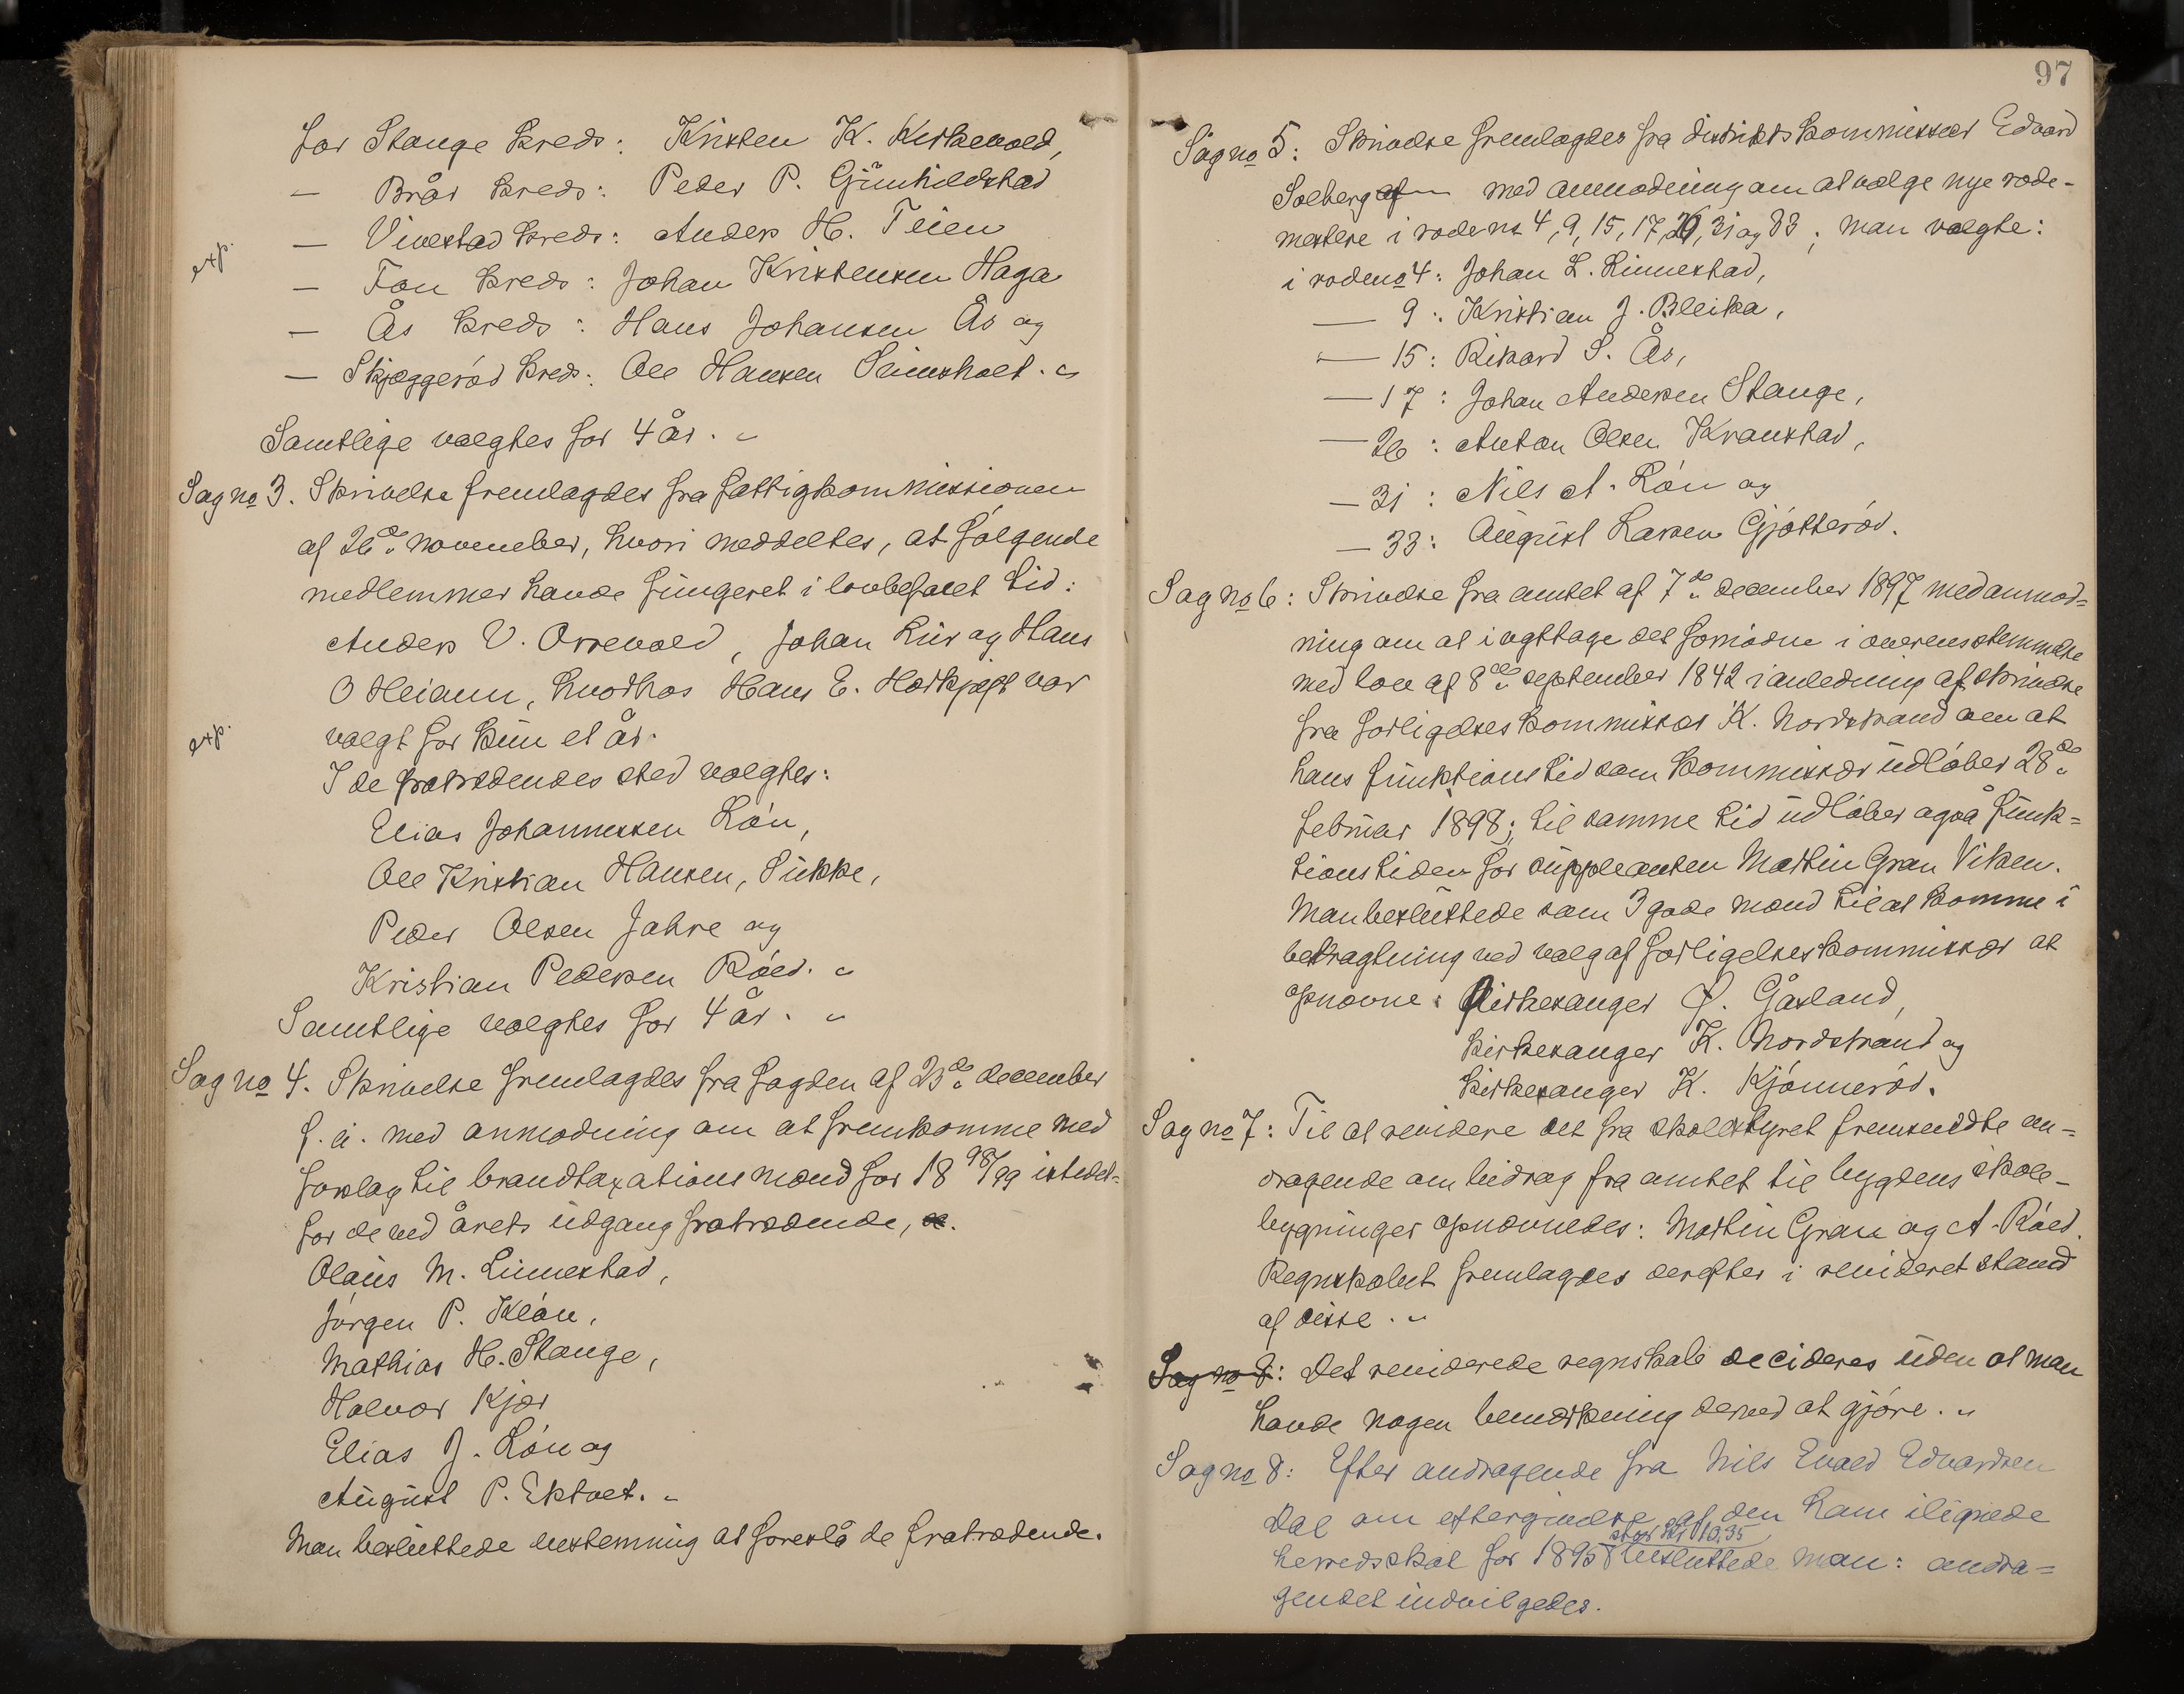 for Stange kreds: Kristen K. Kirkevold,
— Brår kreds: Peder P. Gunhildstad
— Vivestad kreds: Anders H. Teien
exp.
— Fon kreds: Johan Kristensen Haga
— Ås kreds: Hans Johansen Ås og
— Skjæggerød kreds: Ole Hansen Sumsholt.
Samtlige valgtes for 4 år.
Sag no 3. Skrivelse fremlagdes fra fattigkommissionen
af 26de november, hvori meddeltes, at følgende
medlemmer havde fungeret i lovbefalet tid:
Anders V. Orrevold, Johan Lur og Hans
O Heiann, hvorhos Hans E. Horkjøpt var
exp.
valgt for kun et år.
I de fratrædendes sted valgtes:
Elias Johannessen Løn,
Ole Kristian Hansen, Sukke,
Peder Olsen Jahre og
Kristian Pedersen Røed.
Samtlige valgtes for 4 år.
Sag no 4. Skrivelse fremlagdes fra fogden af 23de december
f. å. med anmodning om at fremkomme med
forslag til brandtaxationsmænd for 18 98/99 istedet-
for de ved årets udgang fratrædende,
Olaus M. Linnestad,
Jørgen P. Kløn,
Mathias H. Stange,
Halvor Kjær
Elias J. Løn og
August P. Ektvet.
Man besluttede enstemmig at foreslå de fratrædende.
97
Sag no 5: Skrivelse fremlagdes fra distriktskommissær Edvard
Solberg med anmodning om at vælge nye rode-
mestere i rode no 4, 9, 15, 17, 26, 31 og 33; man valgte:
i rode no 4: Johan L. Linnestad,
— 9: Kristian J. Bleika,
— 15: Rikard S. Ås,
— 17: Johan Andersen Stange,
— 26: Anton Olsen Kranstad,
— 31: Nils A. Løn og
— 33: August Larsen Gjøtterød.
Sag no 6: Skrivelse fra amtet af 7de december 1897 med anmod=
ning om at iagttage det fornødne i overensstemmelse
med lov af 8de september 1842 i anledning af skrivelse
fra forligelseskommissær K. Nordstrand om at
hans funktionstid som kommissær udløber 28de
februar 1898; til samme tid udløber også funk=
tionstiden for suppleanten Martin Gran Viken.
Man besluttede som 3 gode mænd til at komme i
betragtning ved valg af forligelseskommissær at
opnævne: Kirkesanger O. Gåsland,
kirkesanger K. Nordstrand og
kirkesanger K. Kjønnerød.
Sag no 7: Til at revidere det fra skolestyret fremsendte an=
dragende om bidrag fra amtet til bygdens skole-
bygninger opnævnedes: Martin Gran og A. Røed.
Regnskabet fremlagdes derefter i revideret stand
af disse.
Sag no 8: Det reviderede regnskab decideres uden at man
havde nogen bemærkning derved at gjøre.
Sag no 8: Efter andragende fra Nils Evald Edvardsen
Dal om eftergivelse af den ham ilignede
stor kr 10,35
herredsskat for 1895 besluttede man: andra=
gendet indvilgedes.